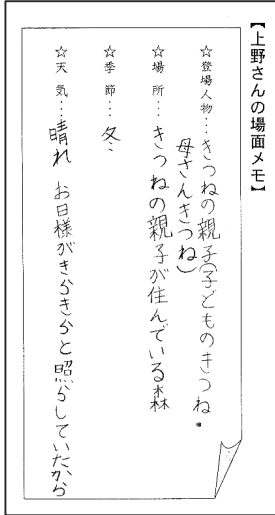 【上野さんの場面メモ】
☆登場人物…きつねの親子(子どものきつね・
母さんきつね)
☆場所…きつねの親子が住んでいる森
☆季節…冬
☆天気…晴れ お日様がきらきらと照らしていたから